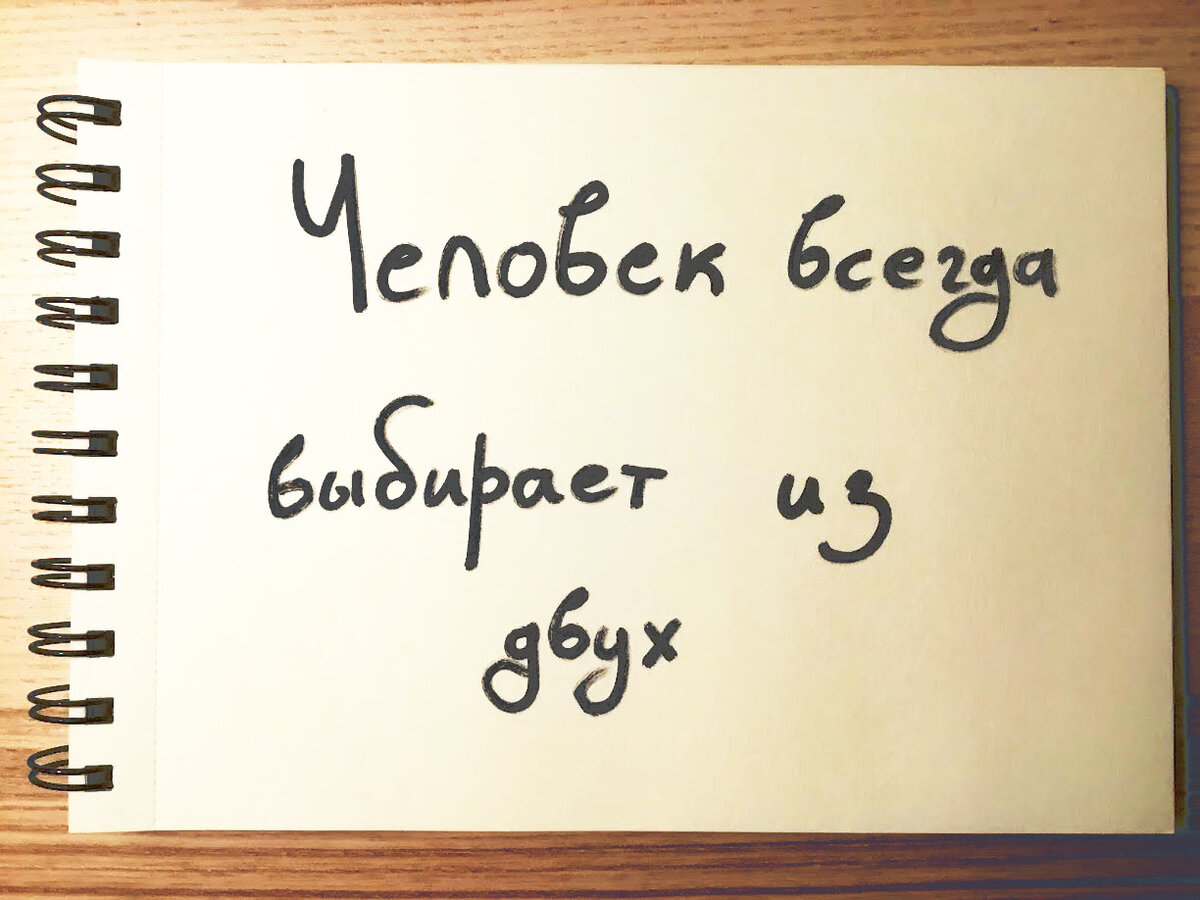 Человек всегда
выбирает из
двух